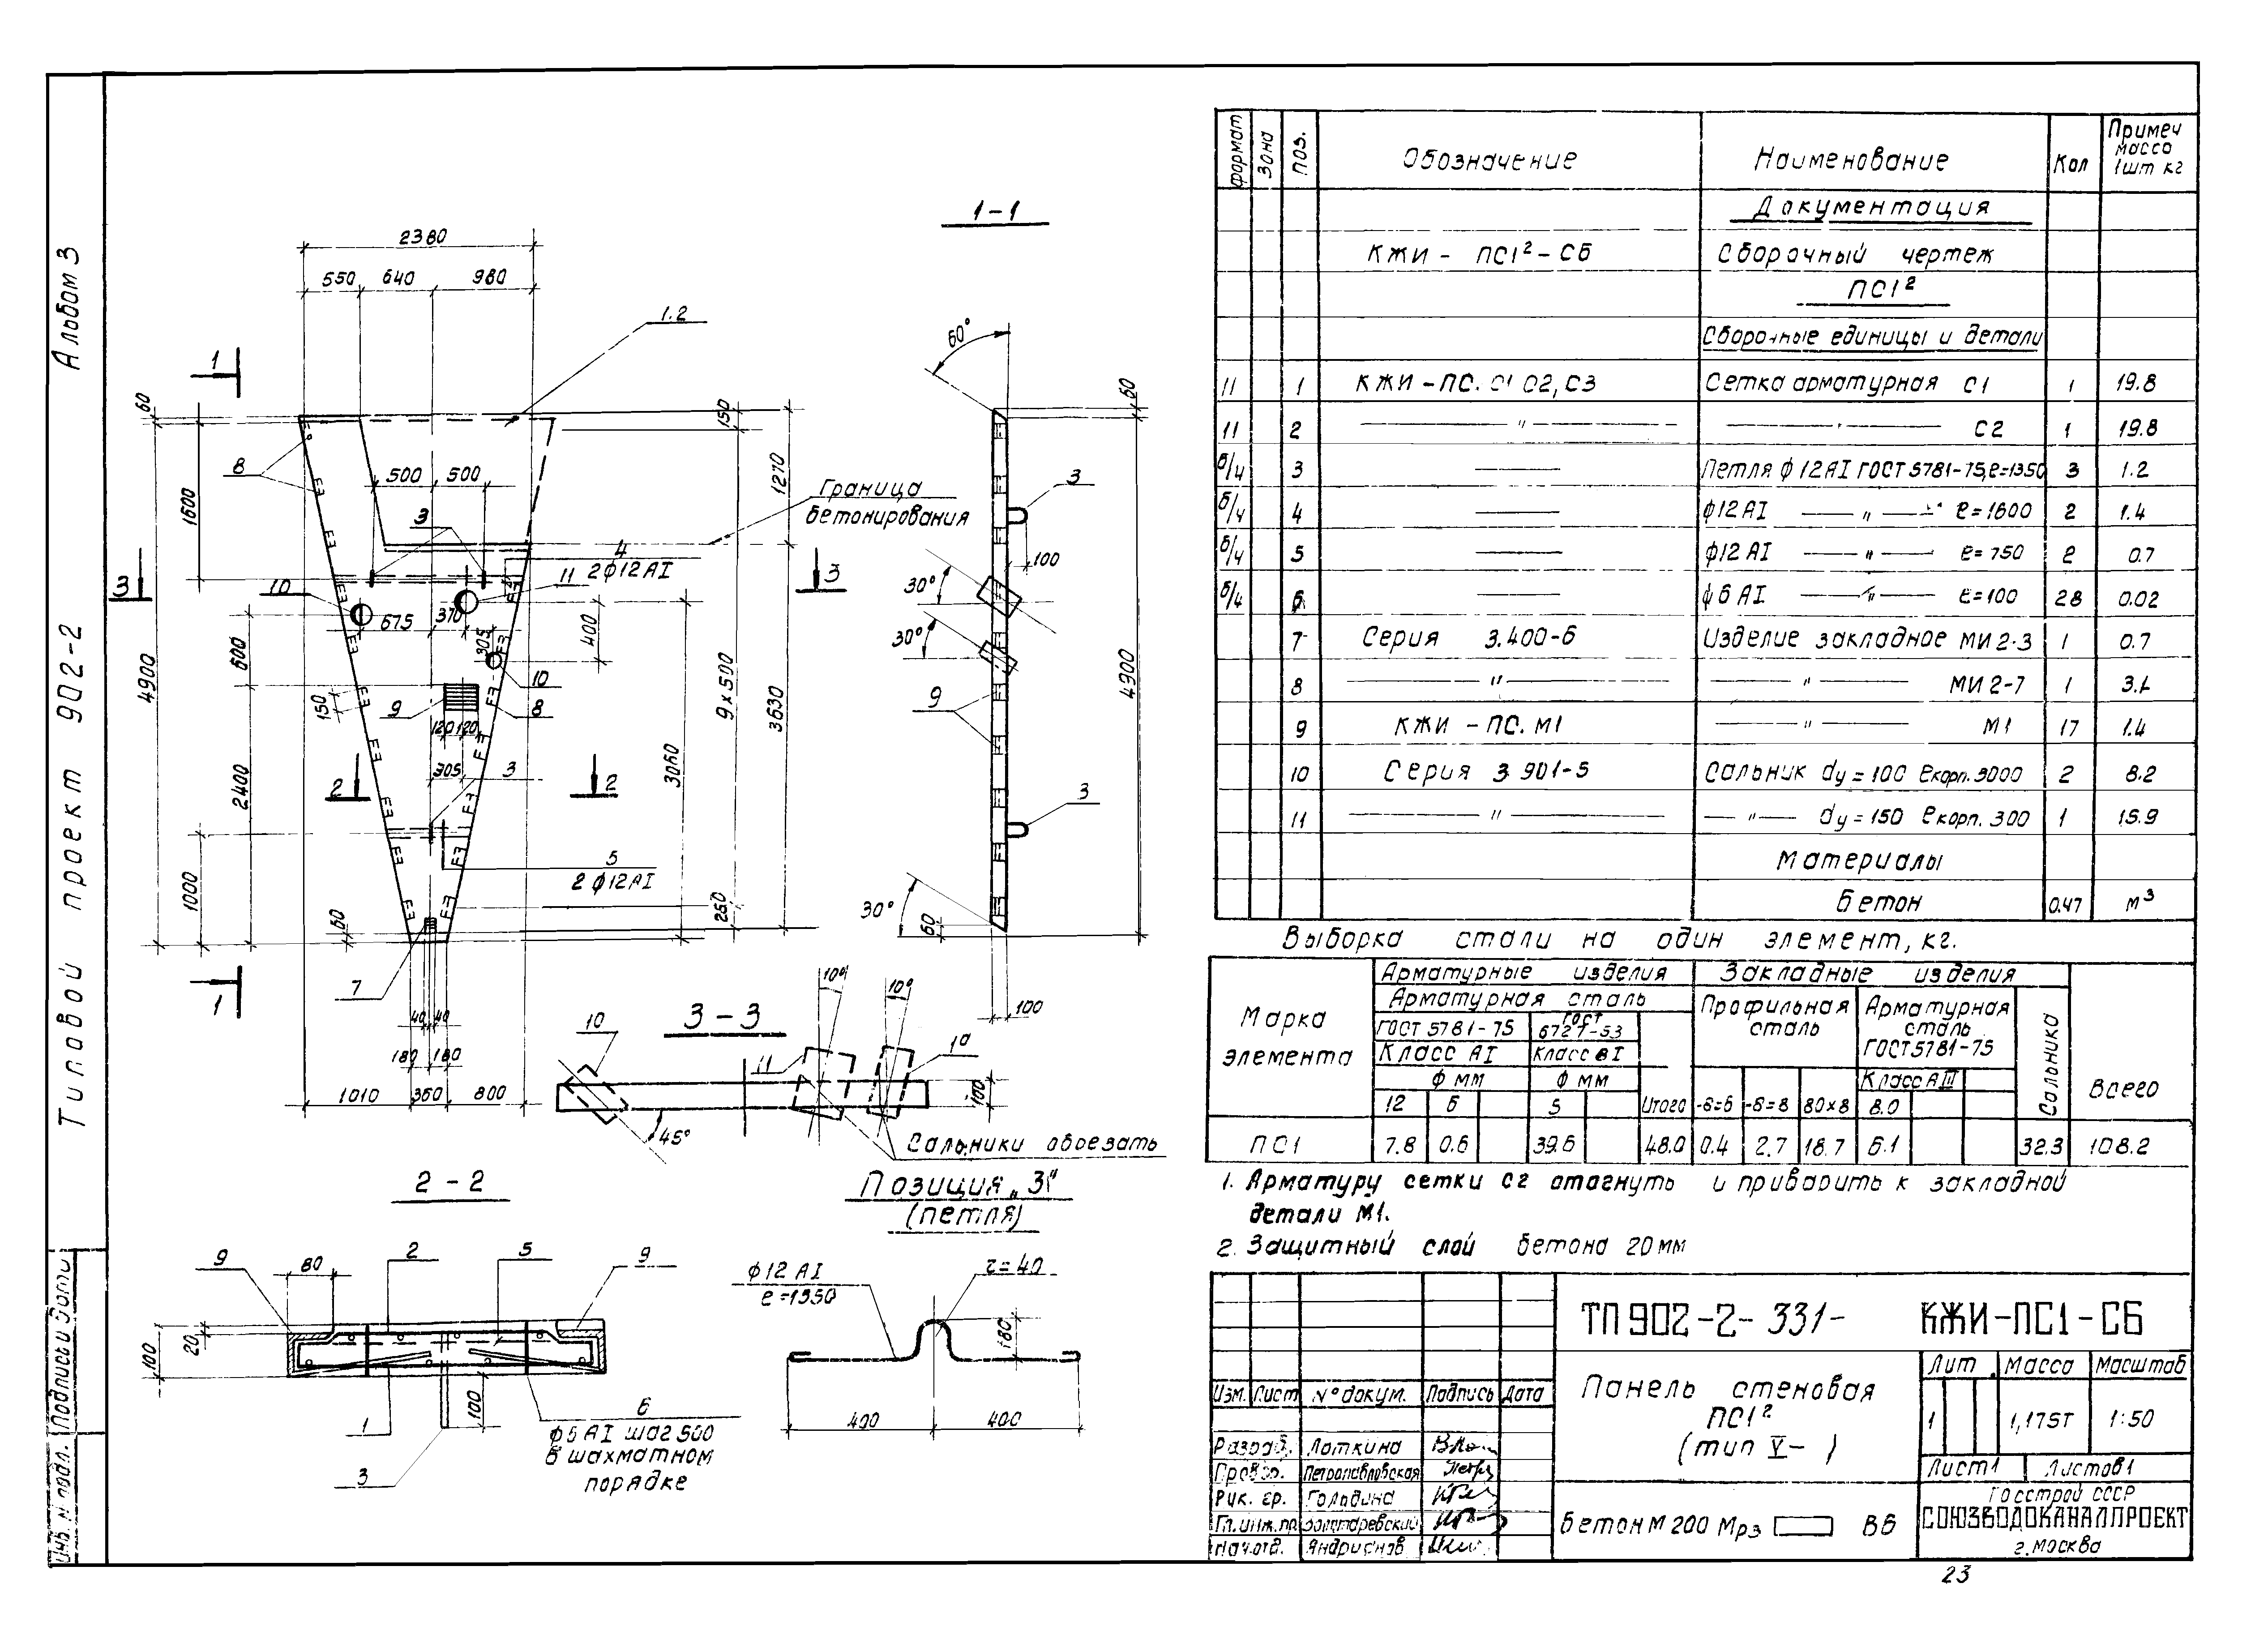 Альбом 3
Типовой проект 902-2
Подпись и дата
Инв. № подл.
2380
550 640 980
1.2
1
60
150
8
500 500
1600
1270
3
Граница
бетонирования
4
2ф12АI
11
3
3
10
675
370
305
400
600
4900
150
9
120 120
10
8
9х500
3630
3060
2400
305
3
2
2
5
2ф12АI
1000
60
260
7
1
40 40
180 180
1010 360 800
1-1
60°
60
3
100
30°
30°
9
4900
3
30°
60
100
3-3
10°
10°
10
11
10
100
45°
Сальники обрезать
2-2
9
80
2
5
9
20
100
1
100
6
ф6АI шаг 500
в шахматном
порядке
3
Позиция „3"
(петля)
ф12АI
ℓ=1350
r=40
180
400 400
Формат Зона Поз. Обозначение Наименование Кол Примеч масса 1шт кг
Документация
КЖИ - ПС1² - СБ Сборочный чертеж
ПС1²
Сборочные единицы и детали
11 1 КЖИ-ПС. С1 С2, С3 Сетка арматурная С1 1 19.8
11 2 —"— —"— С2 1 19.8
б/ч 3 — Петля ф12АI ГОСТ 5781-75, ℓ=1350 3 1.2
б/ч 4 — ф12АI —"— ℓ=1600 2 1.4
б/ч 5 — ф12АI —"— ℓ=750 2 0.7
б/ч 6 — ф6АI —"— ℓ=100 28 0.02
7 Серия 3.400-6 Изделие закладное МИ2-3 1 0.7
8 —"— —"— МИ2-7 1
9 КЖИ-ПС.М1 —"— М1 17 1.4
10 Серия 3.901-5 Сальник dу=100 ℓкорп.3000 2 8.2
11 —"— —"— dу=150 ℓкорп.300 1 15.9
Материалы
Бетон 0.47 м³
Выборка стали на один элемент, кг.
Марка элемента
Арматурные изделия Закладные изделия Всего
Арматурная сталь
Профильная сталь
Арматурная сталь ГОСТ5781-75
Сальника
ГОСТ 5781-75 ГОСТ 6727-53
Класс АI Класс ВI
ф мм ф мм Класс АIII
12 6 5 Итого -б=6 -б=8 80х8 8.0
ПС1 7.8 0.6 39.6 48.0 0.4 2.7 18.7 6.1 32.3 108.2
1. Арматуру сетки С2 отогнуть и приварить к закладной
детали М1.
2. Защитный слой бетона 20мм
ТП902-2-331- КЖИ-ПС1-СБ
Панель стеновая
ПС1²
(тип V- )
Лит. Масса Масштаб
1 1,175т 1:50
Лист1 Листов1
Изм. Лист № докум. Подпись Дата
Разраб. Латкина
Провер. Петропавловская
Рук. гр. Гольдина
Гл.инж.пр Золотаревский
Нач.отд. Андрианов
Бетон М200 Мрз В6
Госстрой СССР
СОЮЗВОДОКАНАЛПРОЕКТ
г.Москва
23